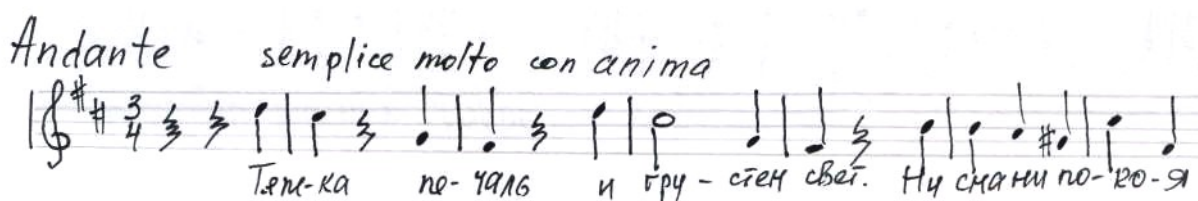 Andante semplice molto con anima
3 4
Тяж-ка пе-чаль и гру-стен свет. Ни сна ни по-ко-я